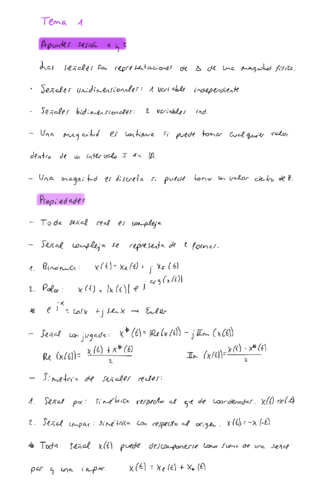 Tema 1
Apuntes sesión 1 y 2
Las señales son representaciones de Δ de una magnitud física.
· Señales unidimensionales: 1 variable independiente
· Señales bidimensionales: 2 variables ind.
- Una magnitud es continua si puede tomar cualquier valor
dentro de un intervalo I en ℝ.
- Una magnitud es discreta si puede tomar un valor dentro de ℤ.
Propiedades
- Toda señal real es compleja
- Señal compleja se representa de 2 formas.
1. Binómica: x(t) = x_R(t) + j x_I(t)
2. Polar: x(t) = |x(t)| e^{j arg(x(t))}
* e^{jx} = cos x + j sen x → Euler
- Señal conjugada: x*(t) = Re(x(t)) - j Im(x(t))
Re(x(t)) = (x(t) + x*(t))/2 Im(x(t)) = (x(t) - x*(t))/2
- Simetría de señales reales:
1. Señal par: simétrica respecto al eje de coordenadas. x(t) = x(-t)
2. Señal impar: simétrica con respecto al origen. x(t) = -x(-t)
* Toda señal x(t) puede descomponerse como suma de una señal
par y una impar. x(t) = x_e(t) + x_o(t)